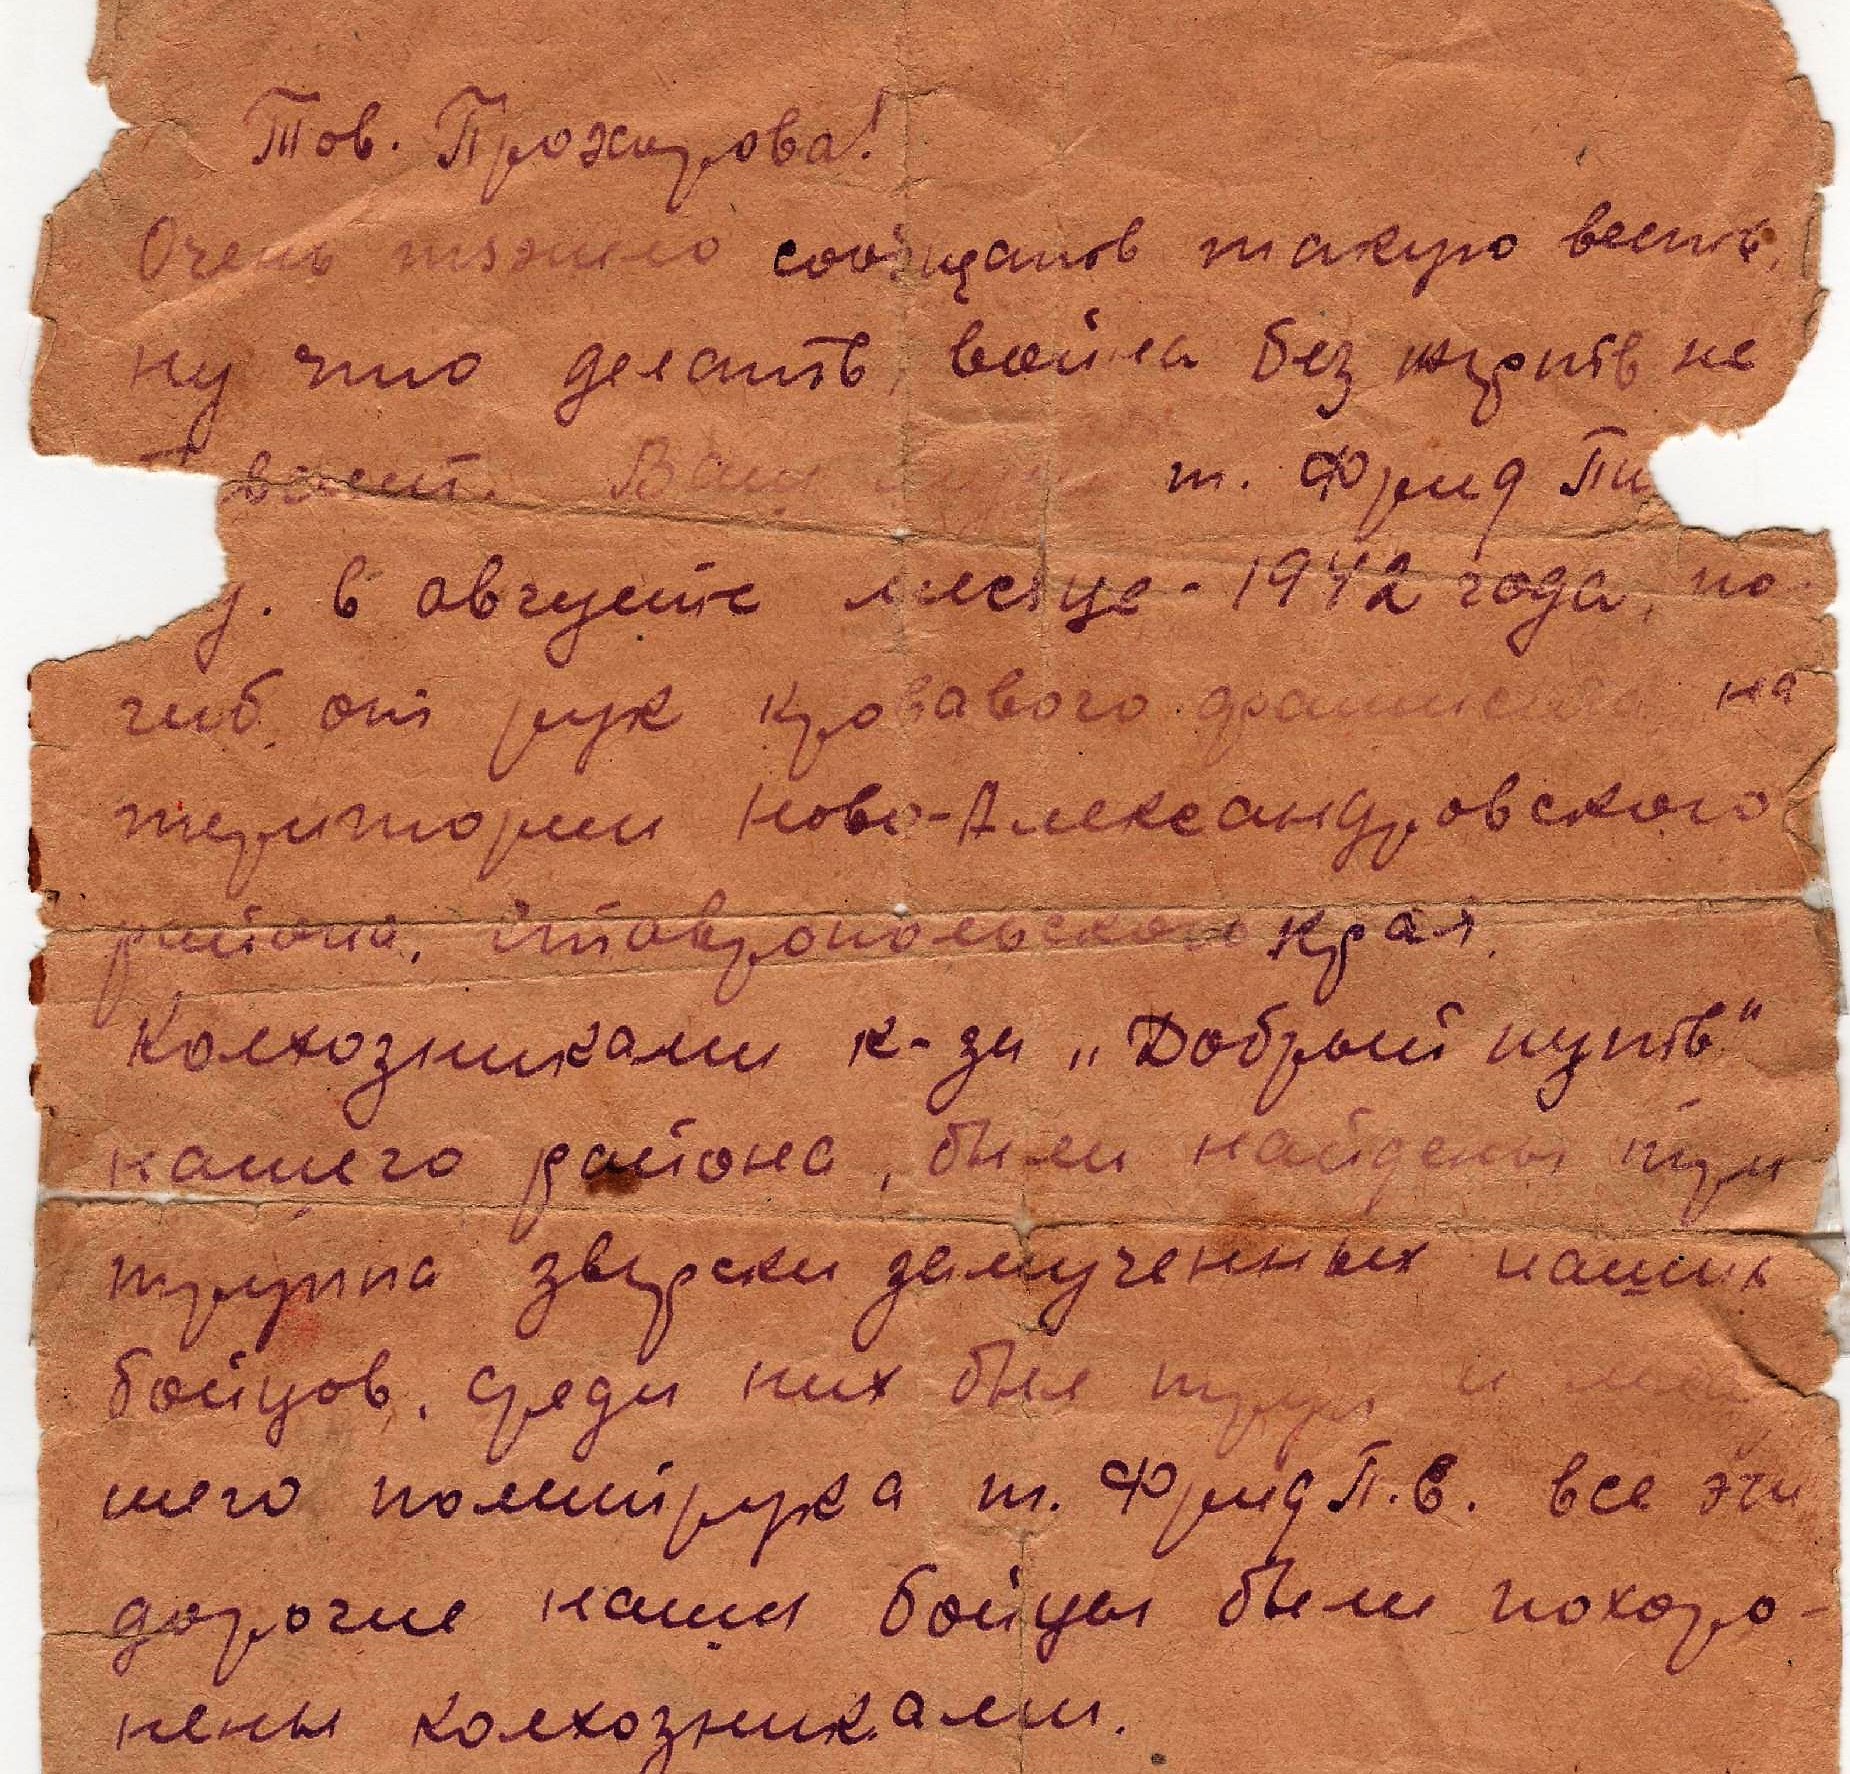 Тов. Прожирова!
Очень тяжело сообщать такую весть,
ну что делать, война без жертв не
бывает. Ваш муж т. Фрид Пи
у. в августе месяце - 1942 года, по-
гиб от рук кровавого фашиста на
территории Ново-Александровского
района, Ставропольского края.
Колхозниками к-за „Добрый путь"
нашего района, были найдены три
группа зверски замученных наших
бойцов, среди них был труп и
шего политрука т. Фрид П.В. все эти
дорогие наши бойцы были похоро-
нены колхозниками.